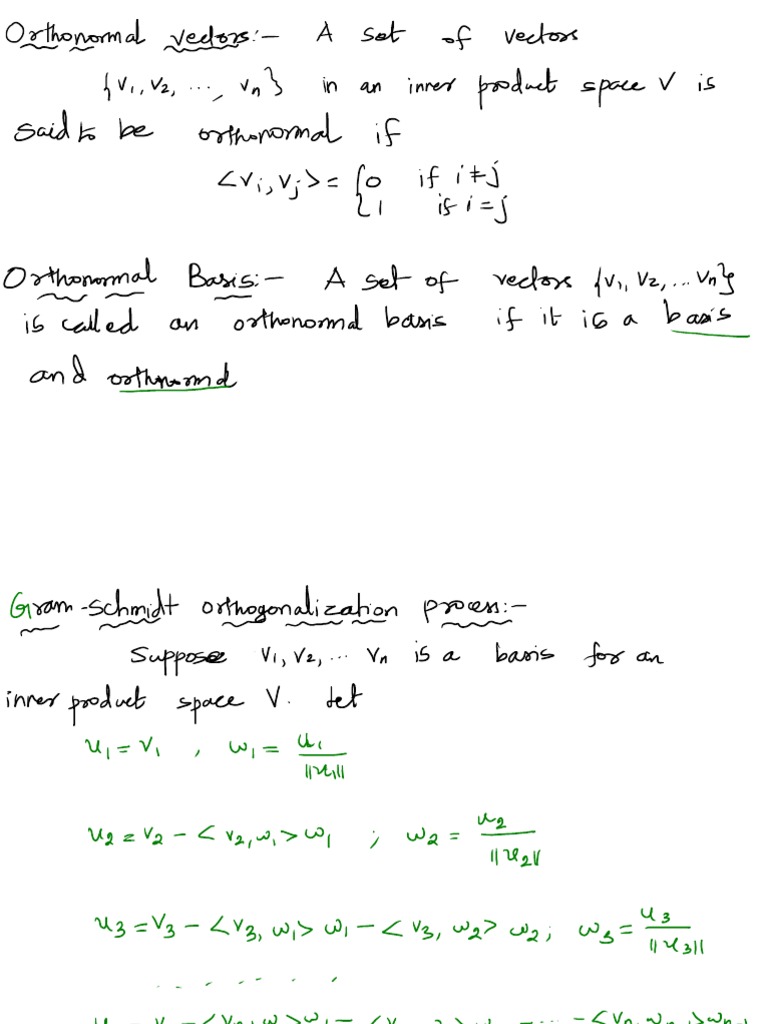 Orthonormal vectors:- A set of vectors
{v₁, v₂, ..., vₙ} in an inner product space V is
said to be orthonormal if
<vᵢ, vⱼ> = { 0 if i ≠ j
1 if i = j
Orthonormal Basis:- A set of vectors {v₁, v₂, ... vₙ}
is called an orthonormal basis if it is a basis
and orthonormal
Gram-schmidt orthogonalization process:-
Suppose v₁, v₂, ... vₙ is a basis for an
inner product space V. Let
u₁ = v₁ , w₁ = u₁/||u₁||
u₂ = v₂ - <v₂, w₁> w₁ ; w₂ = u₂/||u₂||
u₃ = v₃ - <v₃, w₁> w₁ - <v₃, w₂> w₂ ; w₃ = u₃/||u₃||
. . . . . . .